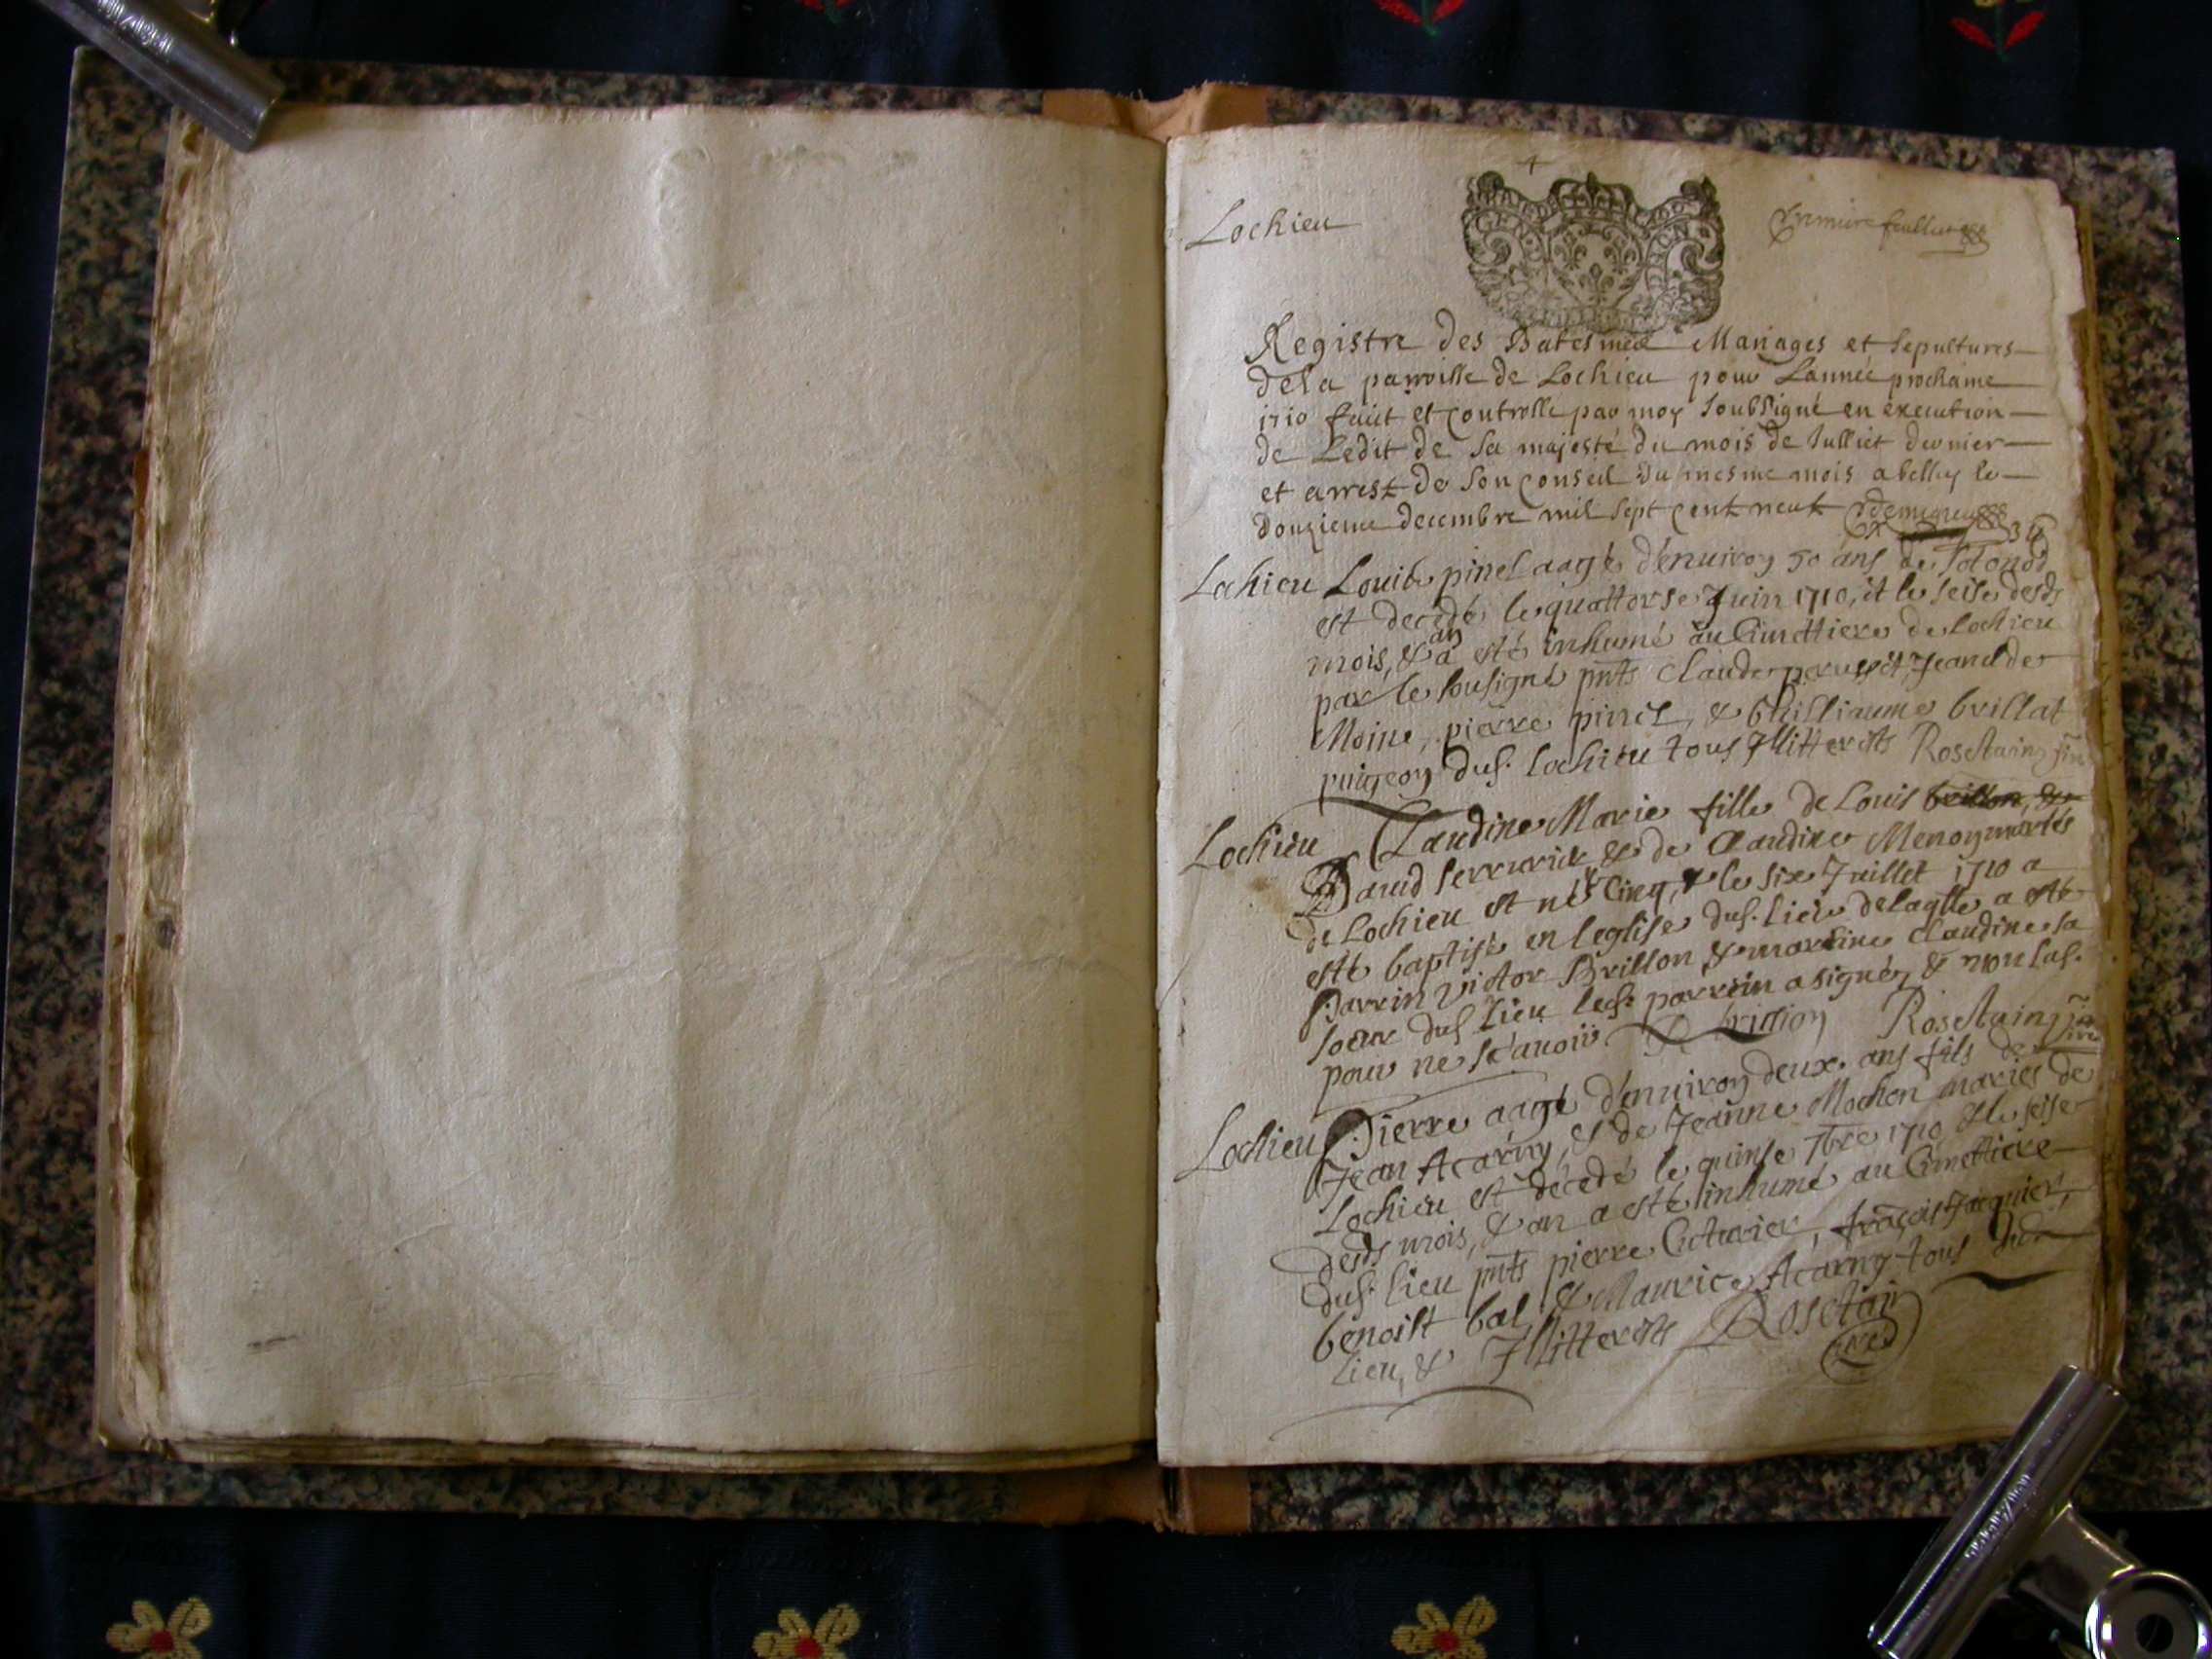 Lochieu
premiere feulliet
Registre des Batesmes Mariages et sepultures
de la parroisse de Lochieu pour Lannée prochaine
1710 faict et controllé par moy soubsigné en execution
de Ledit de sa majesté du mois de Julliet dernier
et arrest de son Conseil du mesme mois a belley le
douzieme decembre mil sept cent neuf
Lochieu Louis pinel aagé d'enuiron 50 ans de sotonod
est decedé le quattorse Juin 1710, et le seise desds
mois, & an a esté inhumé au Cimettiere de Lochieu
par le sousigné pnts Claude peruset, Jean de
Moine, pierre pinel, & Guilliaume brillat
puigeon dud. Lochieu tous Illitterés Rosetain
Lochieu Claudine Marie fille de Louis brillon, &
Dauid serrurier & de Claudine Menoy mariés
de Lochieu est née Cinq, & le six Juillet 1710 a
esté baptisé en leglise dud. Lieu de laqlle a esté
Parrin Victor Brillon & marrine Claudine sa
soeur dud Lieu led. parrein a signé, & non lad.
pour ne scauoir. V brillion Rosetain
Lochieu Pierre aagé d'enuiron deux ans fils de
Jean Acarry, & de Jeanne Mochon mariés de
Lochieu est décedé le quinse 7bre 1710 & le seise
desds mois, & an a esté inhumé au Cimettiere
dud. Lieu pnts pierre Cuturier, françois Jaquier,
benoist bal, & Maurice Acarry tous dud
Lieu, & Illitterés Rosetain